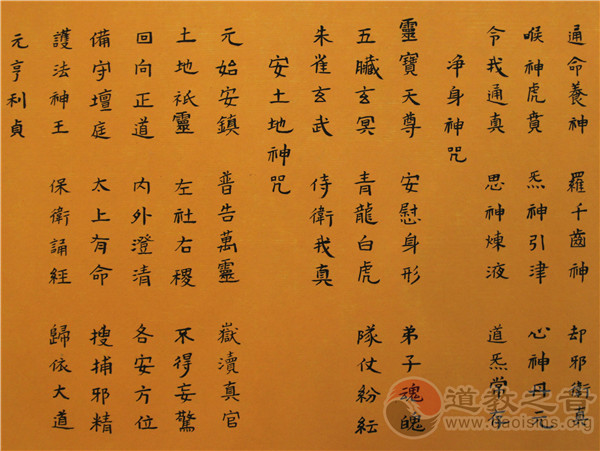 通命養神 羅千齒神 却邪衛真
喉神虎賁 炁神引津 心神丹元
令我通真 思神煉液 道炁常存
净身神咒
靈寶天尊 安慰身形 弟子魂魄
五臟玄冥 青龍白虎 隊仗紛紜
朱雀玄武 侍衛我真
安土地神咒
元始安鎮 普告萬靈 嶽瀆真官
土地祇靈 左社右稷 不得妄驚
回向正道 內外澄清 各安方位
備守壇庭 太上有命 搜捕邪精
護法神王 保衛誦經 歸依大道
元亨利貞
道教之音
www.daoisms.org